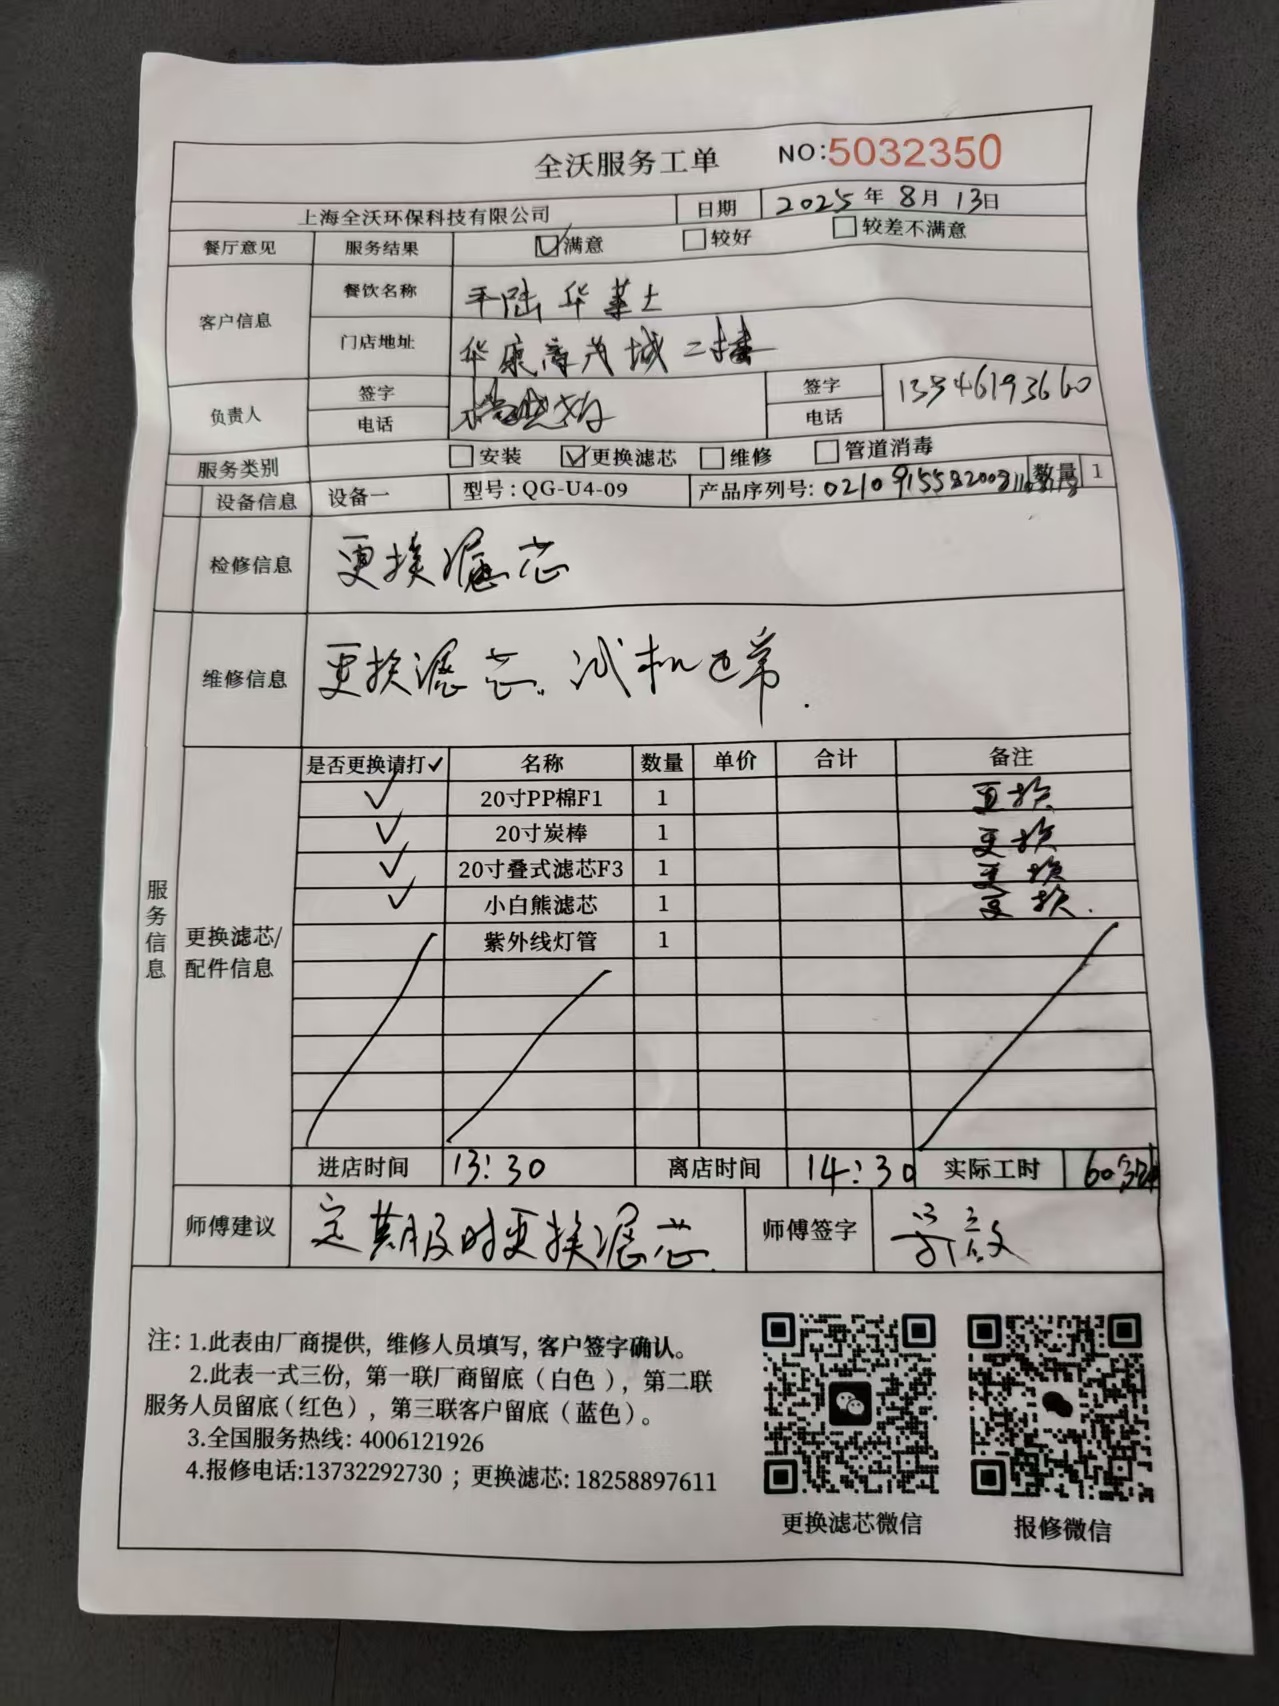 全沃服务工单 NO:5032350
上海全沃环保科技有限公司 日期 2025年8月13日
餐厅意见 服务结果 ☑满意 □较好 □较差不满意
客户信息 餐饮名称 平陆华莱士
门店地址 华康 茂城二楼
负责人 签字 签字
电话 电话 13546193660
服务类别 □安装 ☑更换滤芯 □维修 □管道消毒
设备信息 设备一 型号:QG-U4-09 产品序列号: 数量 1
检修信息 更换滤芯
维修信息 更换滤芯.试机正常.
服务信息
更换滤芯/
配件信息
是否更换请打✓ 名称 数量 单价 合计 备注
✓ 20寸PP棉F1 1 更换
✓ 20寸炭棒 1 更换
✓ 20寸叠式滤芯F3 1 更换
✓ 小白熊滤芯 1 更换.
紫外线灯管 1
进店时间 13:30 离店时间 14:30 实际工时 60分钟
师傅建议 定期及时更换滤芯. 师傅签字
注: 1.此表由厂商提供, 维修人员填写, 客户签字确认。
2.此表一式三份, 第一联厂商留底(白色), 第二联
服务人员留底(红色), 第三联客户留底(蓝色)。
3.全国服务热线: 4006121926
4.报修电话:13732292730 ; 更换滤芯: 18258897611
更换滤芯微信 报修微信